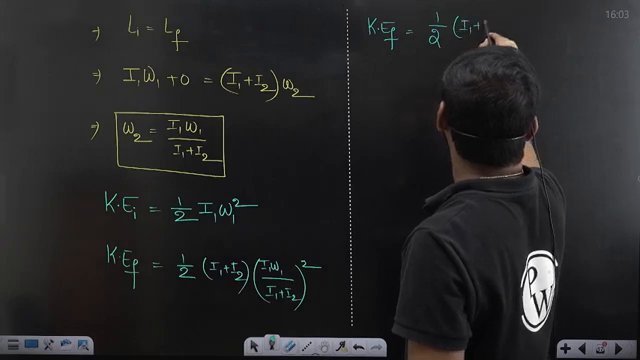 ⇒ Li = Lf
⇒ I₁W₁ + 0 = (I₁+I₂)ω₂
⇒ ω₂ = I₁W₁/(I₁+I₂)
K·Ei = 1/2 I₁ω₁²
K·Ef = 1/2 (I₁+I₂) (I₁W₁/(I₁+I₂))²
K·Ef = 1/2 (I₁+
16:03
PW